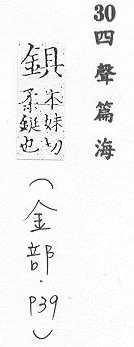 30 四聲篇海
鋇 本妹切
柔鋌也
(金部.P39)